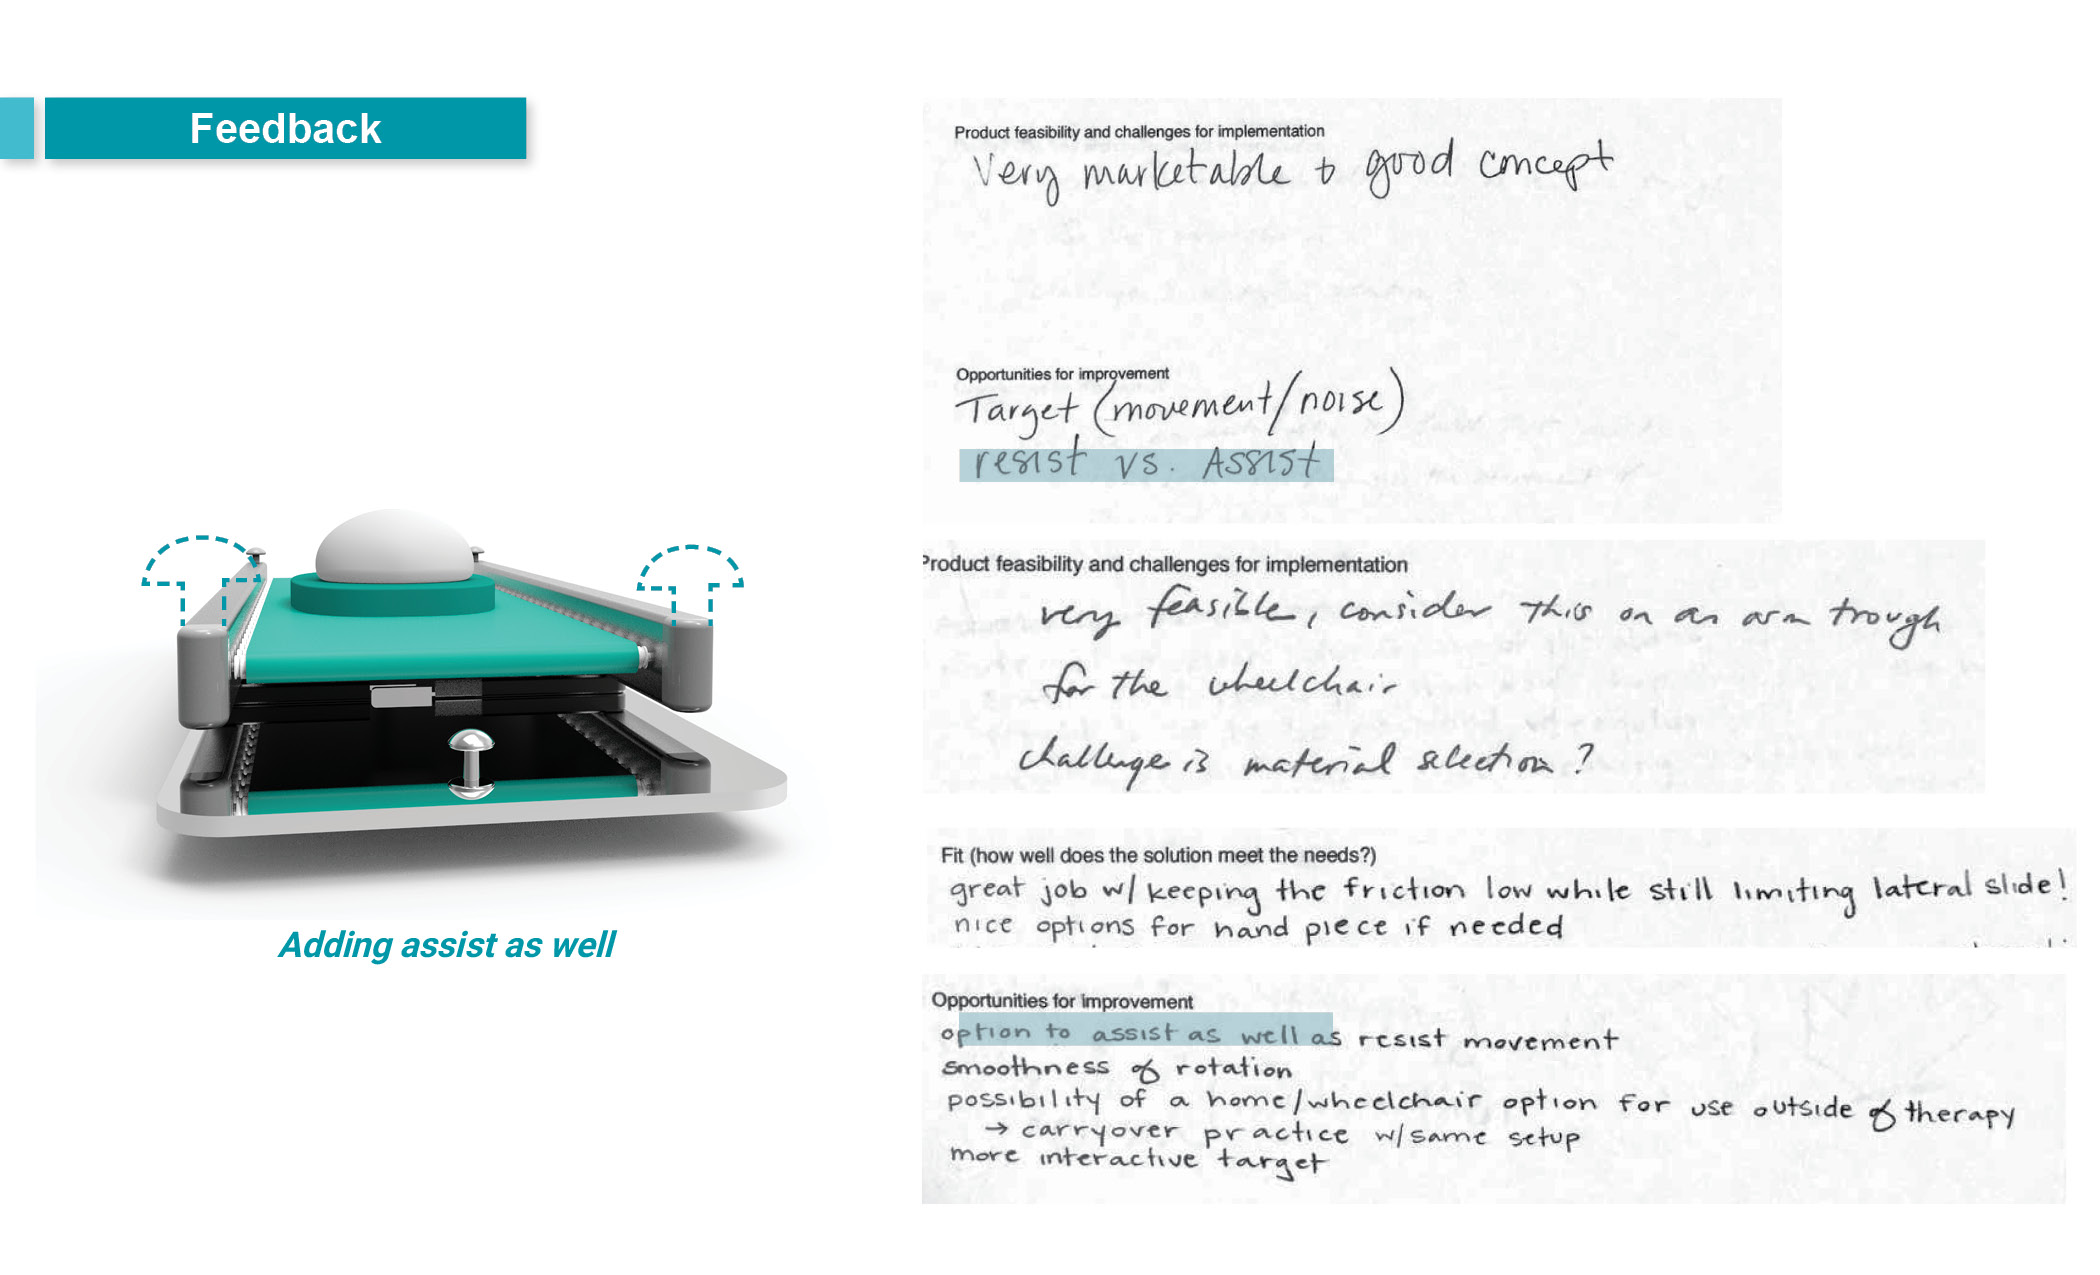 Feedback
Product feasibility and challenges for implementation
Very marketable & good concept
Opportunities for improvement
Target (movement/noise)
resist vs. Assist
Product feasibility and challenges for implementation
very feasible, consider this on an arm trough
for the wheelchair
challenge is material selection?
Fit (how well does the solution meet the needs?)
great job w/ keeping the friction low while still limiting lateral slide!
nice options for hand piece if needed
Opportunities for improvement
option to assist as well as resist movement
smoothness of rotation
possibility of a home/wheelchair option for use outside of therapy
→ carryover practice w/same setup
more interactive target
Adding assist as well